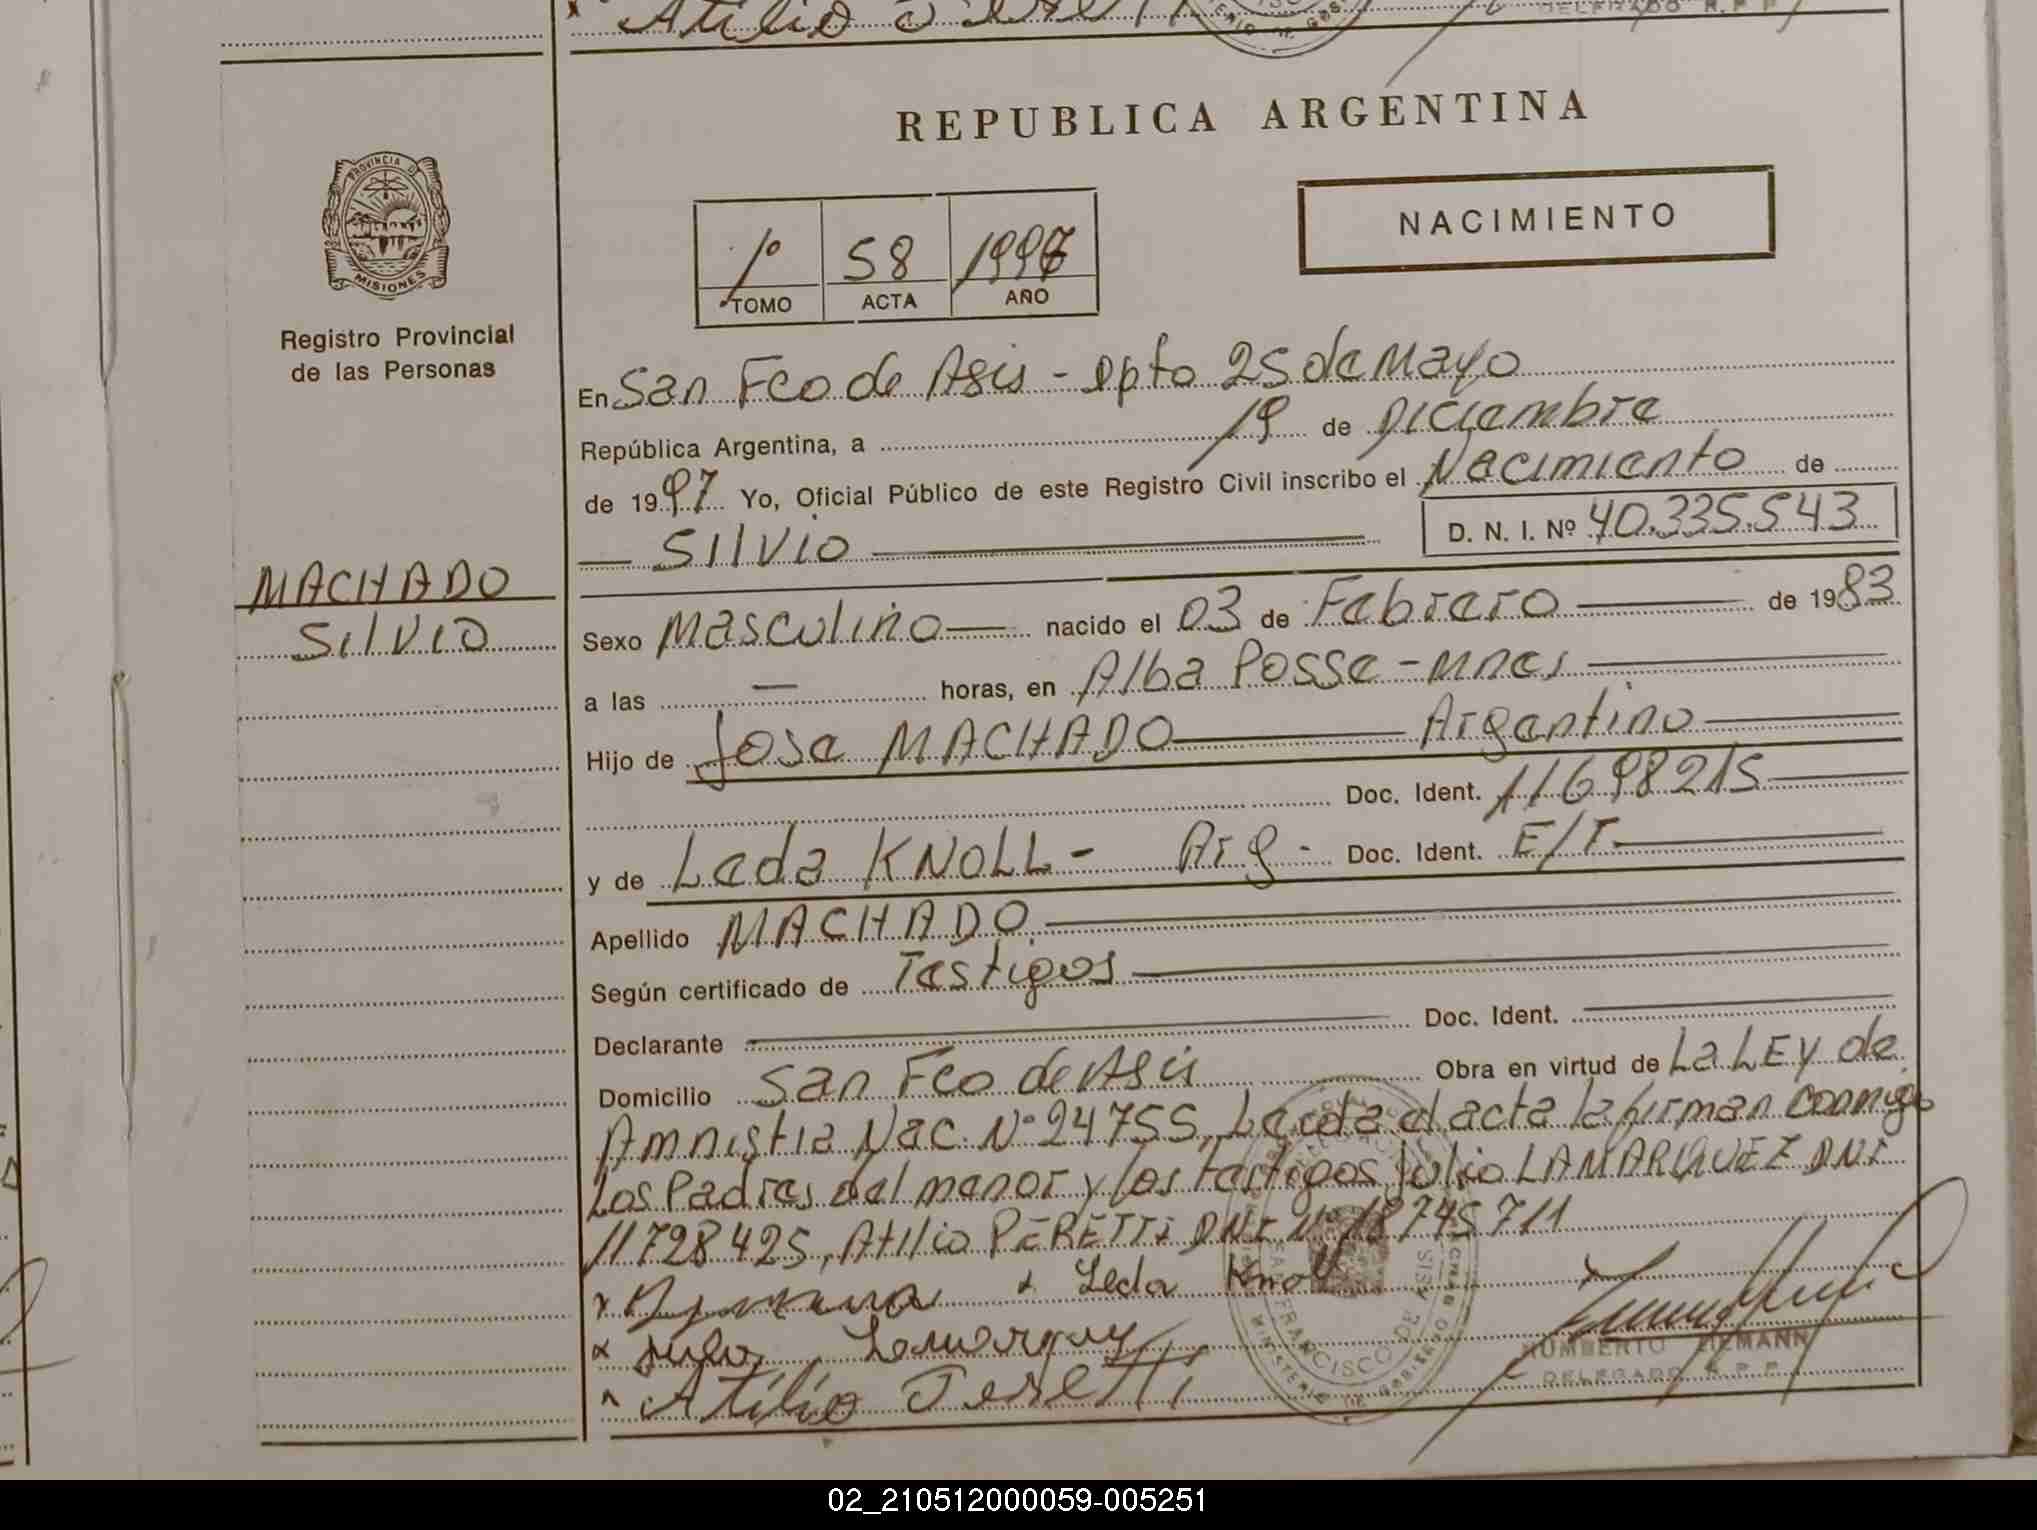 Atilio
DELEGADO R.P.P.
REPUBLICA ARGENTINA
PROVINCIA DE
MISIONES
Registro Provincial
de las Personas
NACIMIENTO
1º 58 1997
TOMO ACTA AÑO
En San Fco de Asis - Dpto 25 de Mayo
República Argentina, a 19 de Diciembre
de 1997 Yo, Oficial Público de este Registro Civil inscribo el Nacimiento de
— Silvio — D. N. I. Nº 40.335.543
MACHADO
Silvio
Sexo Masculino — nacido el 03 de Febrero — de 1983
a las — horas, en Alba Posse - Mnes
Hijo de Jose MACHADO — Argentino
Doc. Ident. 11698215
y de Leda KNOLL - Arg - Doc. Ident. E/T.
Apellido MACHADO.
Según certificado de Testigos
Declarante — Doc. Ident. —
Domicilio San Fco de Asis Obra en virtud de La LEY de
Amnistia Nac. Nº 24755, Leida el acta la firman conmigo
Los Padres del menor y los testigos Julio LAMARQUEZ DNI
11728425, Atilio PERETTI DNI Nº 18745711
x Leda Knoll
x Julio Lamarquez
Atilio Peretti
SAN FRANCISCO DE ASIS
MINISTERIO DE GOBIERNO
HUMBERTO ZIEMANN
DELEGADO R.P.P.
02_210512000059-005251